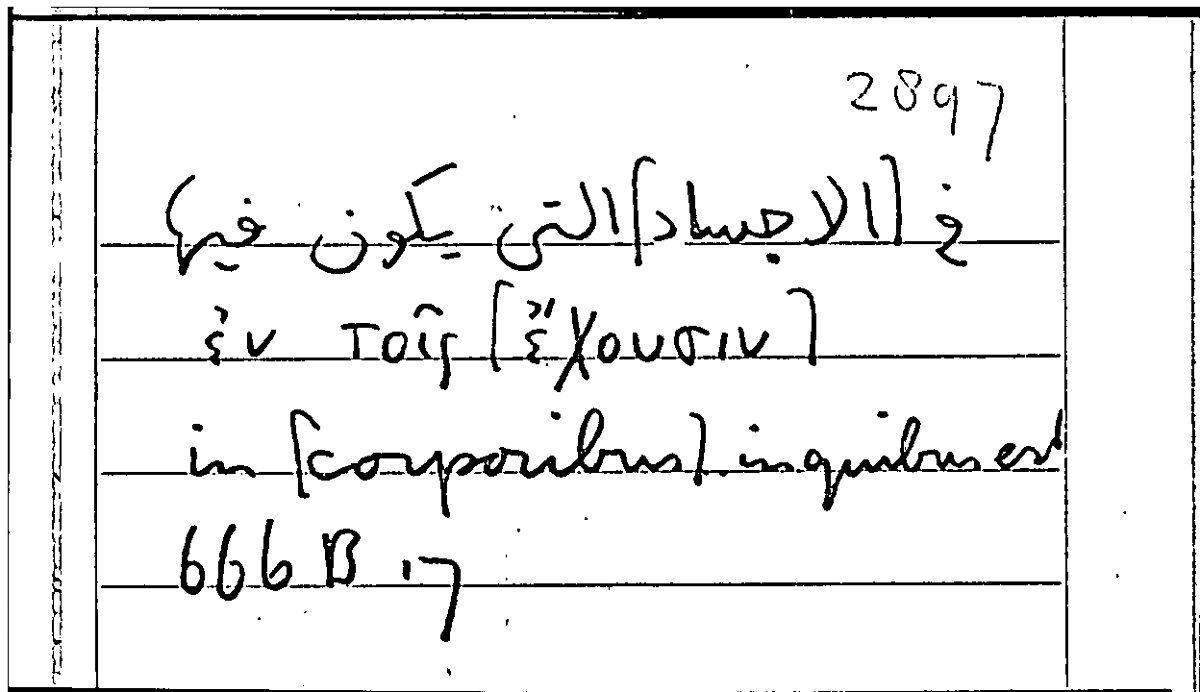 2897
في [الاجساد] التي يكون فيها
ἐν τοῖς [ἔχουσιν]
in [corporibus] in quibus est
666 B 17